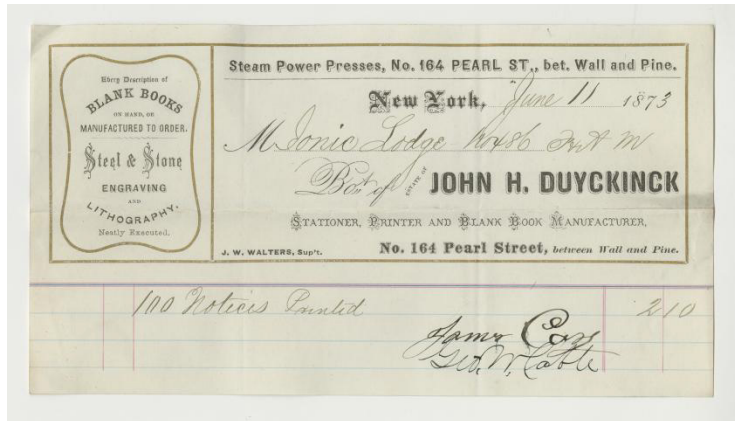 Every Description of
BLANK BOOKS
ON HAND, OR
MANUFACTURED TO ORDER.
Steel & Stone
ENGRAVING
AND
LITHOGRAPHY.
Neatly Executed.
Steam Power Presses, No. 164 PEARL ST., bet. Wall and Pine.
New York, June 11 1873
M Ionic Lodge No 486 F & A M
Bot of ESTATE OF JOHN H. DUYCKINCK
STATIONER, PRINTER AND BLANK BOOK MANUFACTURER,
J. W. WALTERS, Sup't. No. 164 Pearl Street, between Wall and Pine.
100 Notices Printed 2 10
James
Geo. W. Cable